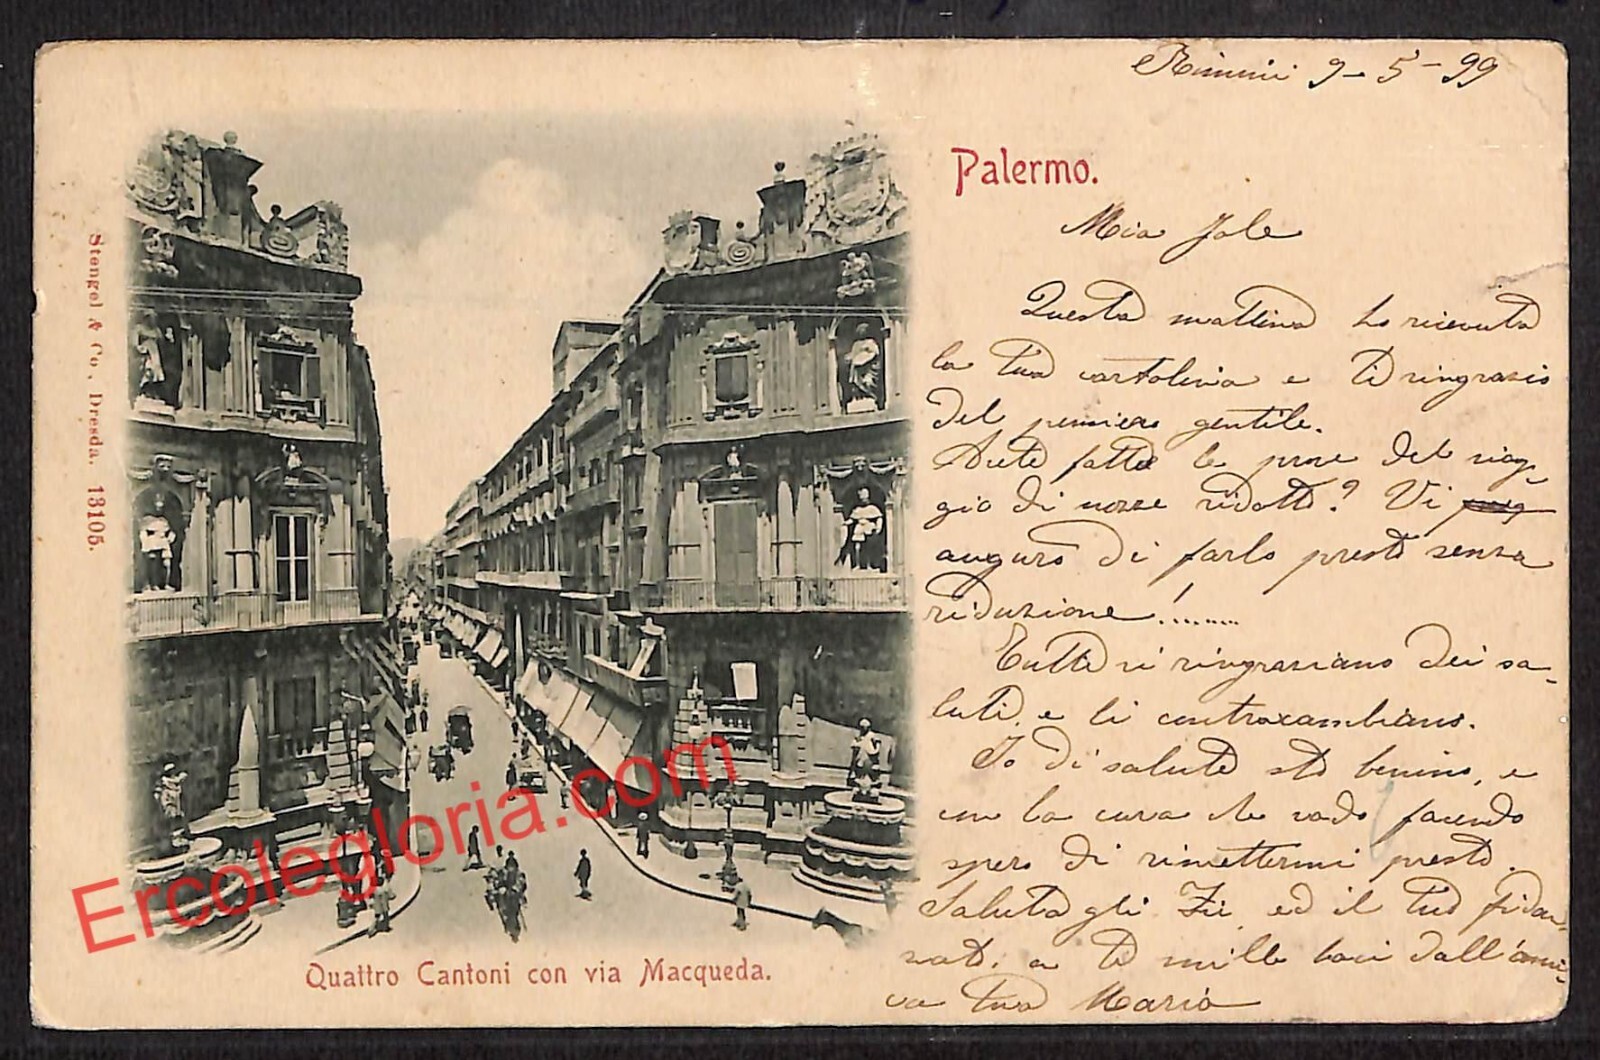 Rimini 9-5-99
Palermo.
Mia Jole
Questa mattina ho ricevuta
la tua cartolina e ti ringrazio
del pensiero gentile.
Avete fatto le prove del viag-
gio di nozze ridotto? Vi
auguro di farlo presto senza
riduzione!.......
Tutti vi ringraziano dei sa-
luti, e li contraccambiano.
Io di salute sto benino, e
con la cura che vado facendo
spero di rimettermi presto.
Saluta gli Zii, ed il tuo fidan-
zato; a te mille baci dall'ami-
ca tua Maria
Stengel & Co., Dresda. 13105.
Quattro Cantoni con via Macqueda.
Ercolegloria.com